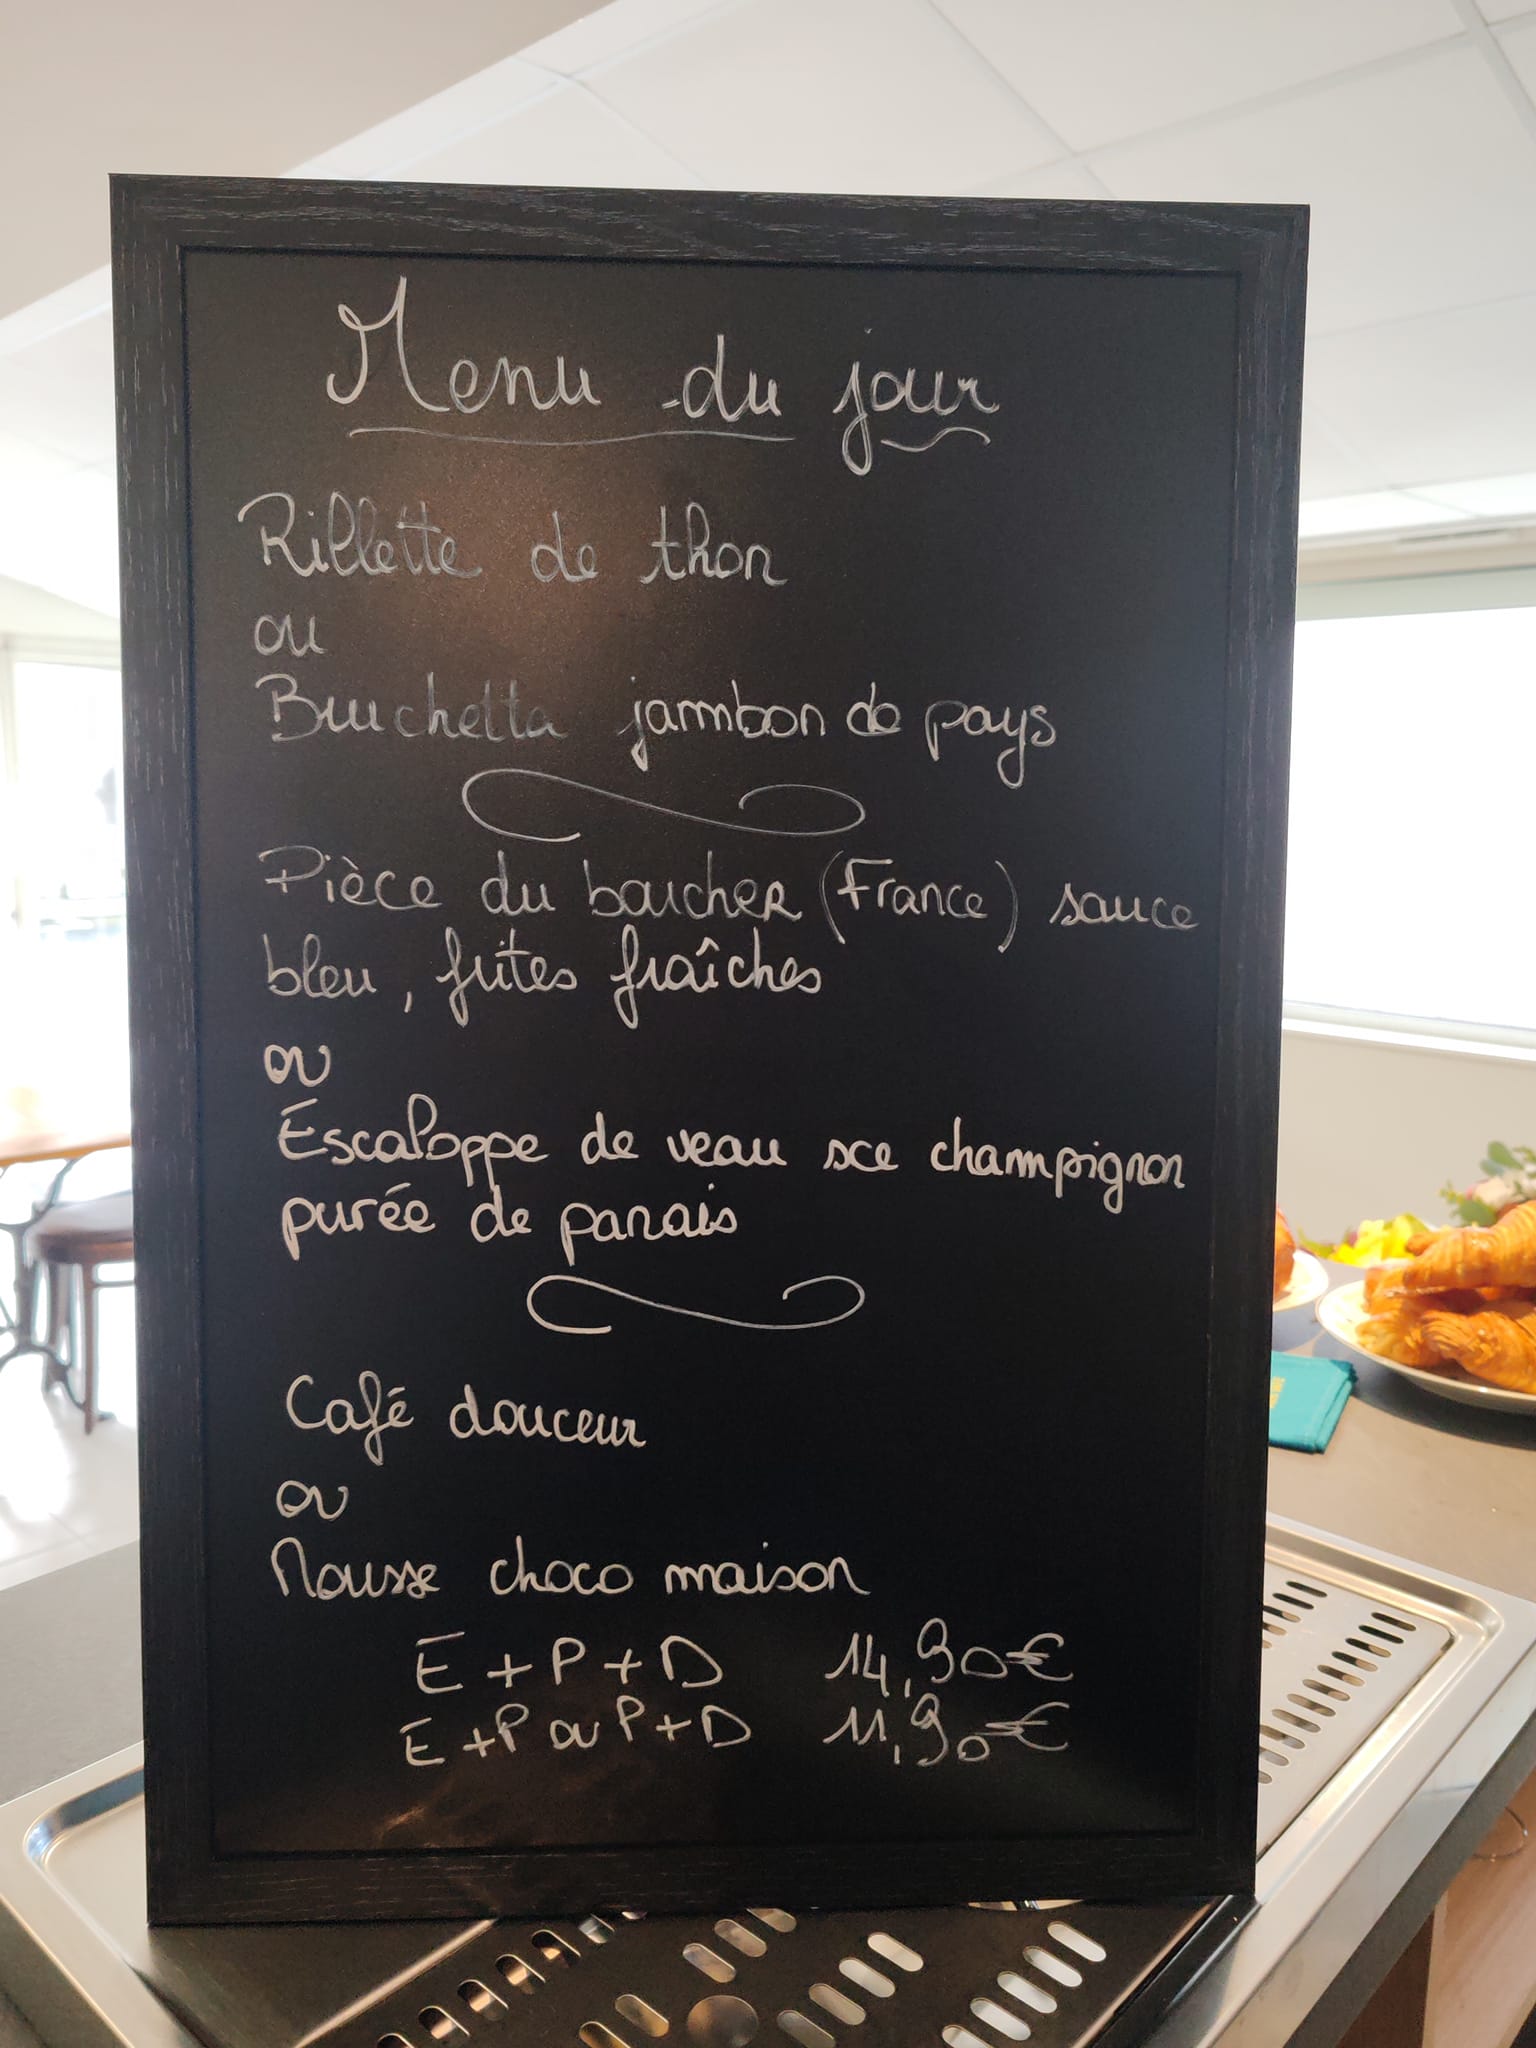 Menu du jour
Rillette de thon
ou
Bruchetta jambon de pays
Pièce du boucher (France) sauce
bleu, frites fraîches
ou
Escaloppe de veau sce champignon
purée de panais
Café douceur
ou
Mousse choco maison
E + P + D 14,90€
E + P ou P + D 11,90€